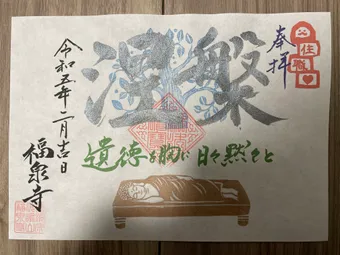 奉拝
涅槃
遺徳を胸に日々黙々と
令和五年二月吉日
福泉寺